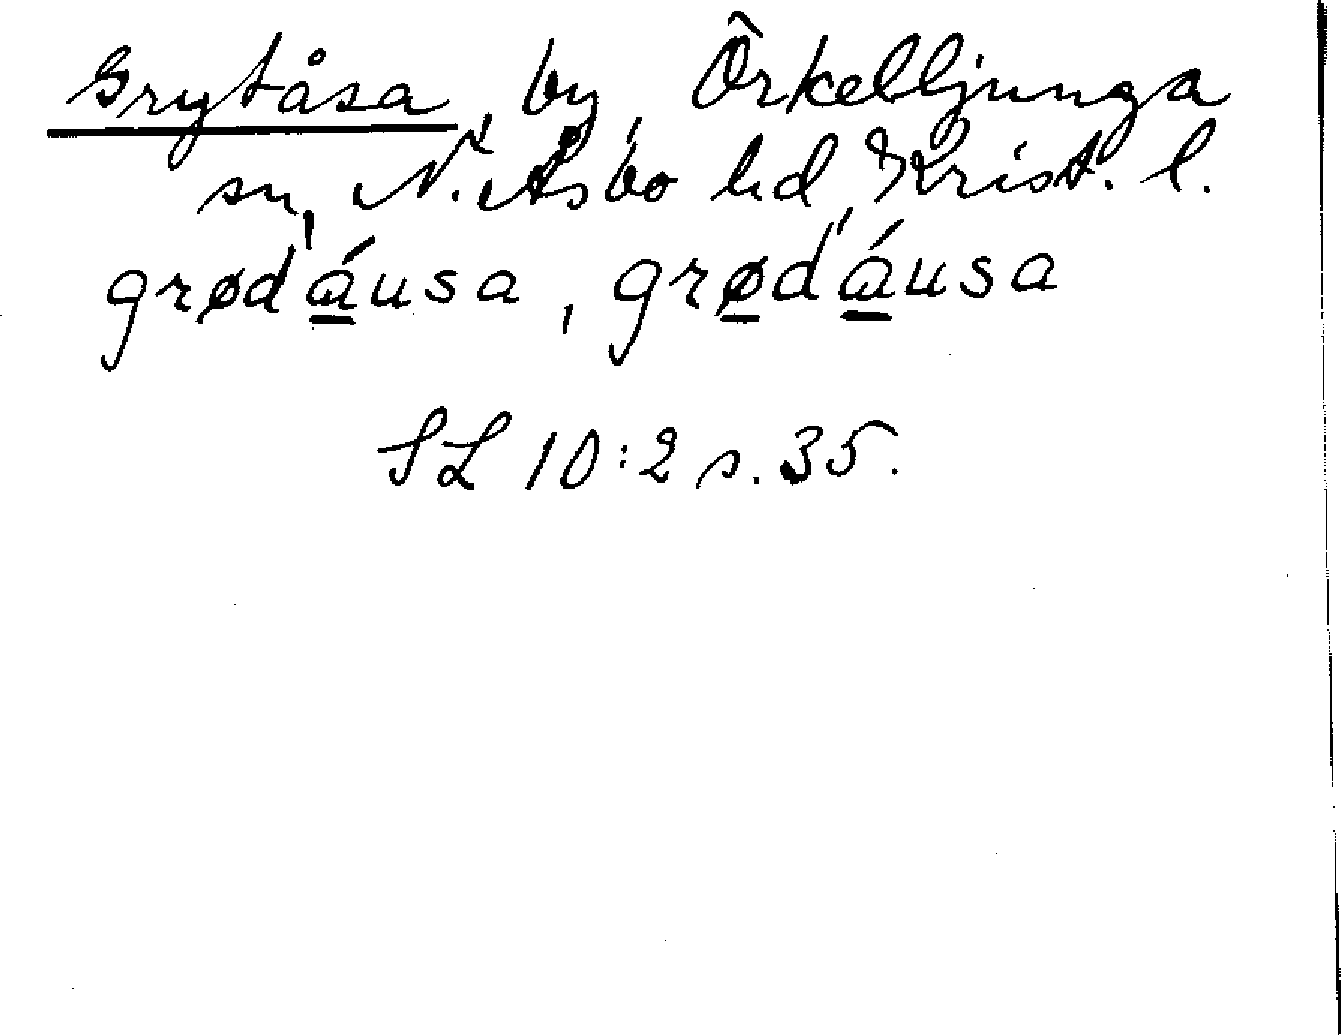 Grytåsa, by, Örkelljunga
sn, N. Åsbo hd, Krist. l.
grødáusa, grø̲dá̲usa
SL 10:2 s. 35.